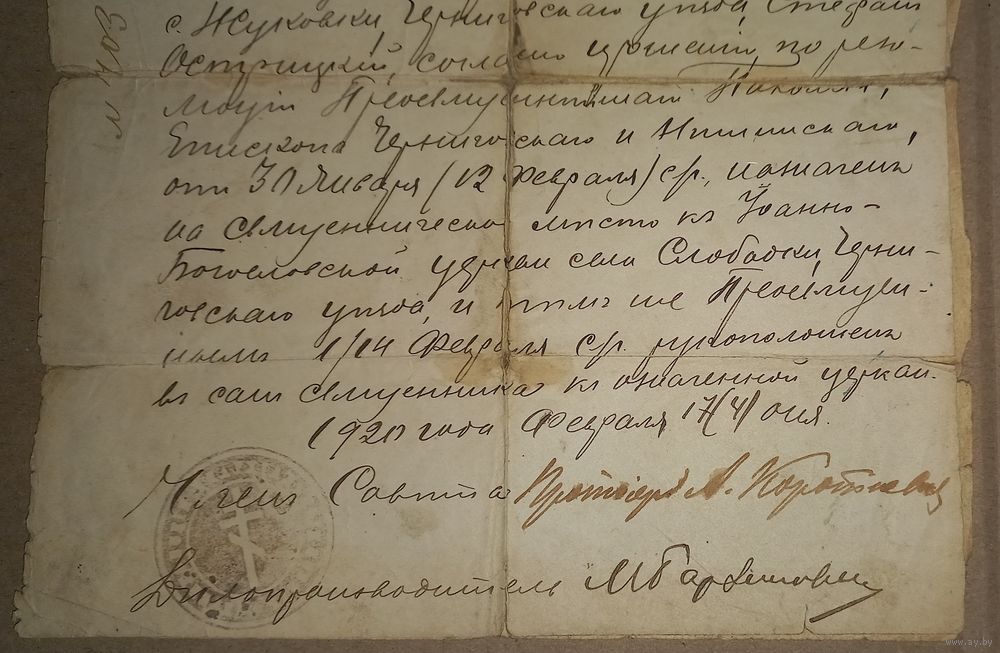 с. Жуковки, Черниговскаго уѣзда, Стефан
Острицкій, согласно прошенію, по резо-
люціи Преосвященнѣйшаго Пахомія,
Епископа Черниговскаго и Нѣжинскаго,
от 30 Января (12 Февраля) с/г., назначенъ
на священническое мѣсто къ Іоанно-
Богословской церкви села Слободки, Черни-
говскаго уѣзда, и тѣмъ же Преосвящен-
нымъ 1/14 Февраля с/г. рукоположенъ
въ санъ священника къ означенной церкви.
1920 года Февраля 17(4) дня.
Членъ Совѣта Протоіерей А.
Дѣлопроизводитель М
№ 403
www.ay.by